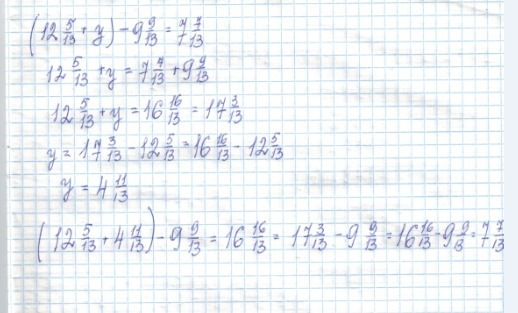 (12 5/13 + y) - 9 9/13 = 7 7/13
12 5/13 + y = 7 7/13 + 9 9/13
12 5/13 + y = 16 16/13 = 17 3/13
y = 17 3/13 - 12 5/13 = 16 16/13 - 12 5/13
y = 4 11/13
(12 5/13 + 4 11/13) - 9 9/13 = 16 16/13 = 17 3/13 - 9 9/13 = 16 16/13 - 9 9/13 = 7 7/13